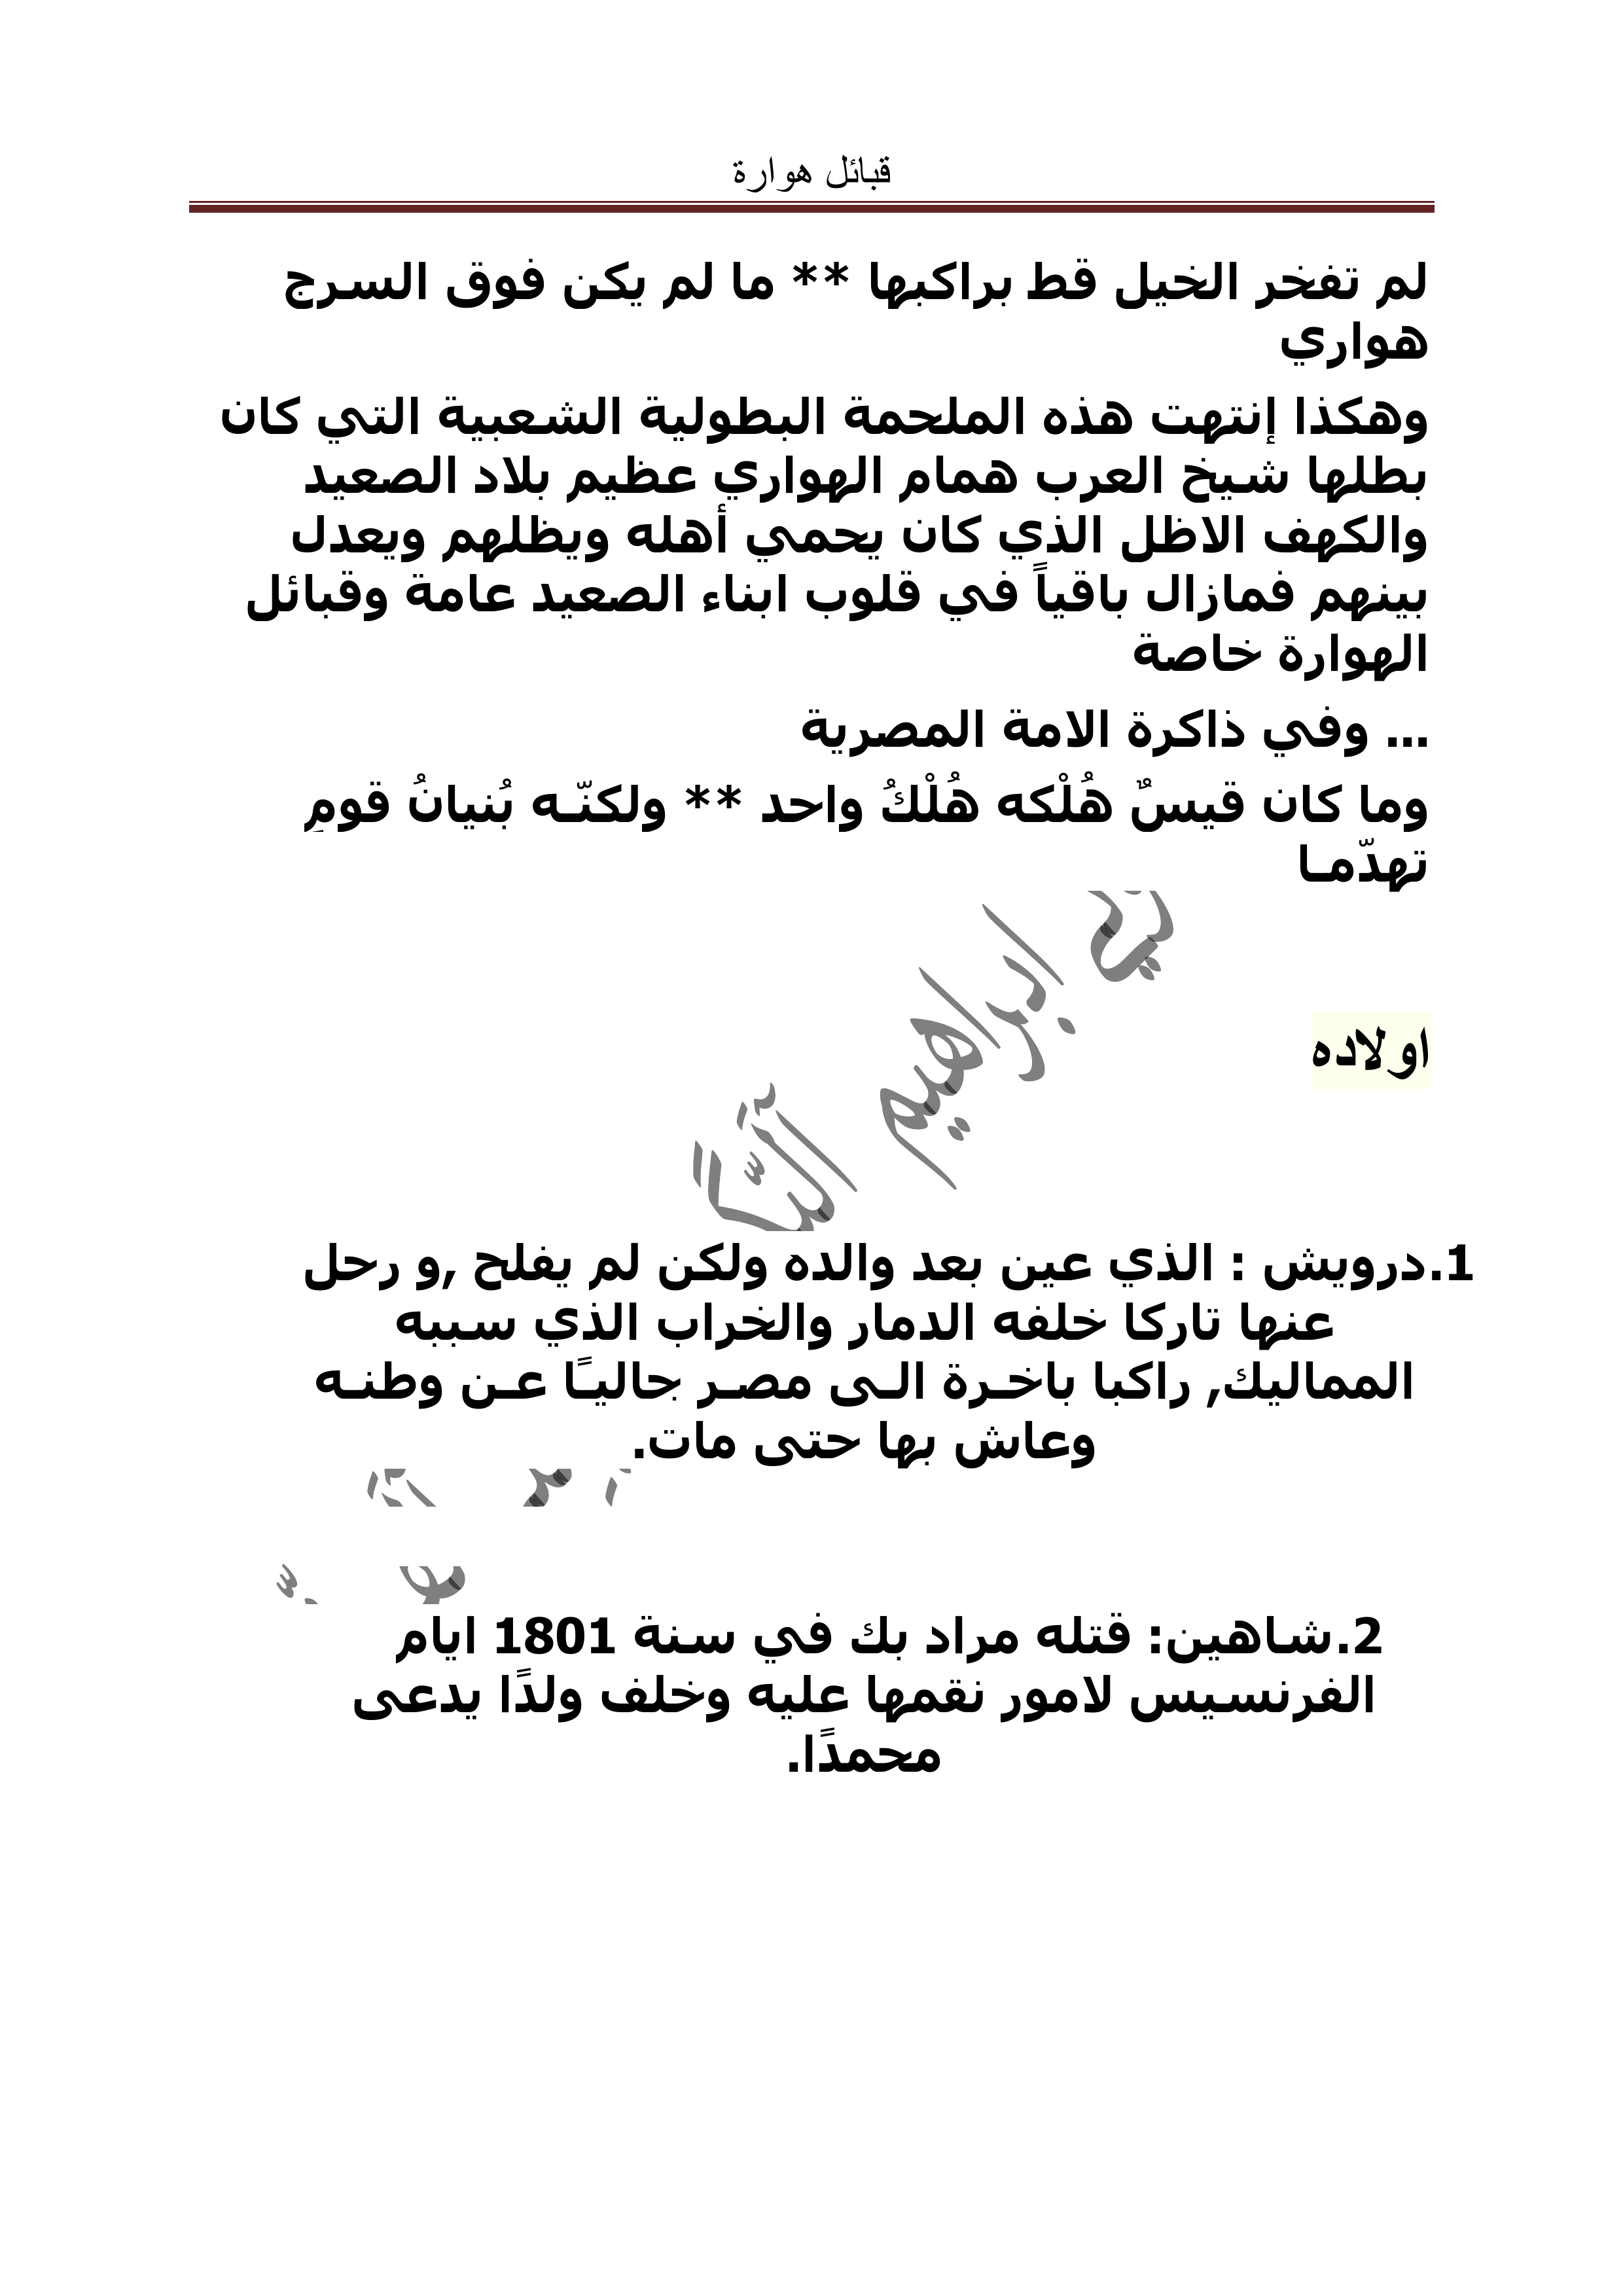 قبائل هوارة
لم تفخر الخيل قط براكبها ** ما لم يكن فوق السرج
هواري
وهكذا إنتهت هذه الملحمة البطولية الشعبية التي كان
بطلها شيخ العرب همام الهواري عظيم بلاد الصعيد
والكهف الاظل الذي كان يحمي أهله ويظلهم ويعدل
بينهم فمازال باقياً في قلوب ابناء الصعيد عامة وقبائل
الهوارة خاصة
... وفي ذاكرة الامة المصرية
وما كان قيسٌ هُلْكه هُلْكُ واحد ** ولكنّـه بُنيانُ قومٍ
تهدّمـا
ابراهيم
اولاده
1.درويش : الذي عين بعد والده ولكن لم يفلح ,و رحل
عنها تاركا خلفه الدمار والخراب الذي سببه
المماليك, راكبا باخـرة الـى مصـر جاليـًا عـن وطنـه
وعاش بها حتى مات.
2.شاهين: قتله مراد بك في سنة 1801 ايام
الفرنسيس لامور نقمها عليه وخلف ولدًا يدعى
محمدًا.